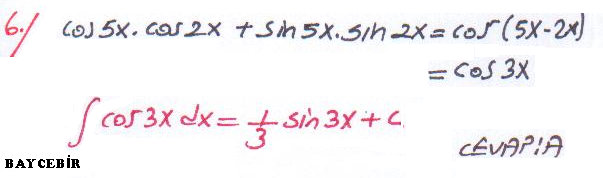 6./ cos5x.cos2x + sin5x.sin2x = cos(5x-2x)
= cos3x
∫cos3x dx = 1/3 sin3x + c
CEVAP:A
BAYCEBİR